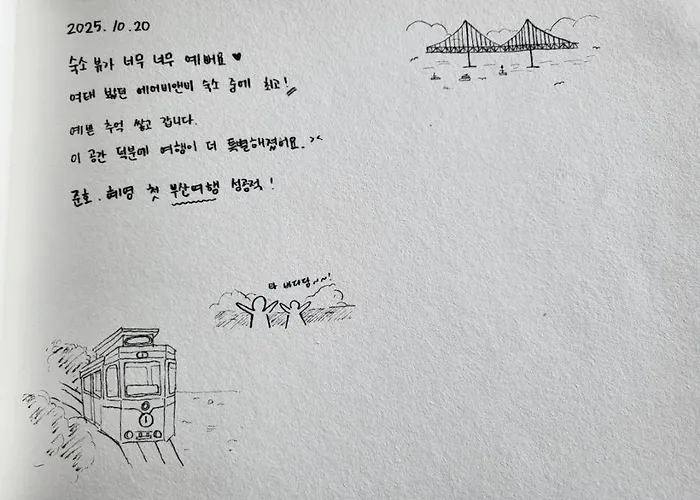 2025. 10. 20
숙소 뷰가 너무 너무 예뻐요 ♥
여태 봤던 에어비앤비 숙소 중에 최고!
예쁜 추억 쌓고 갑니다.
이 공간 덕분에 여행이 더 특별해졌어요. ><
준호. 혜영 첫 부산여행 성공적!
와 바다당~~!
1